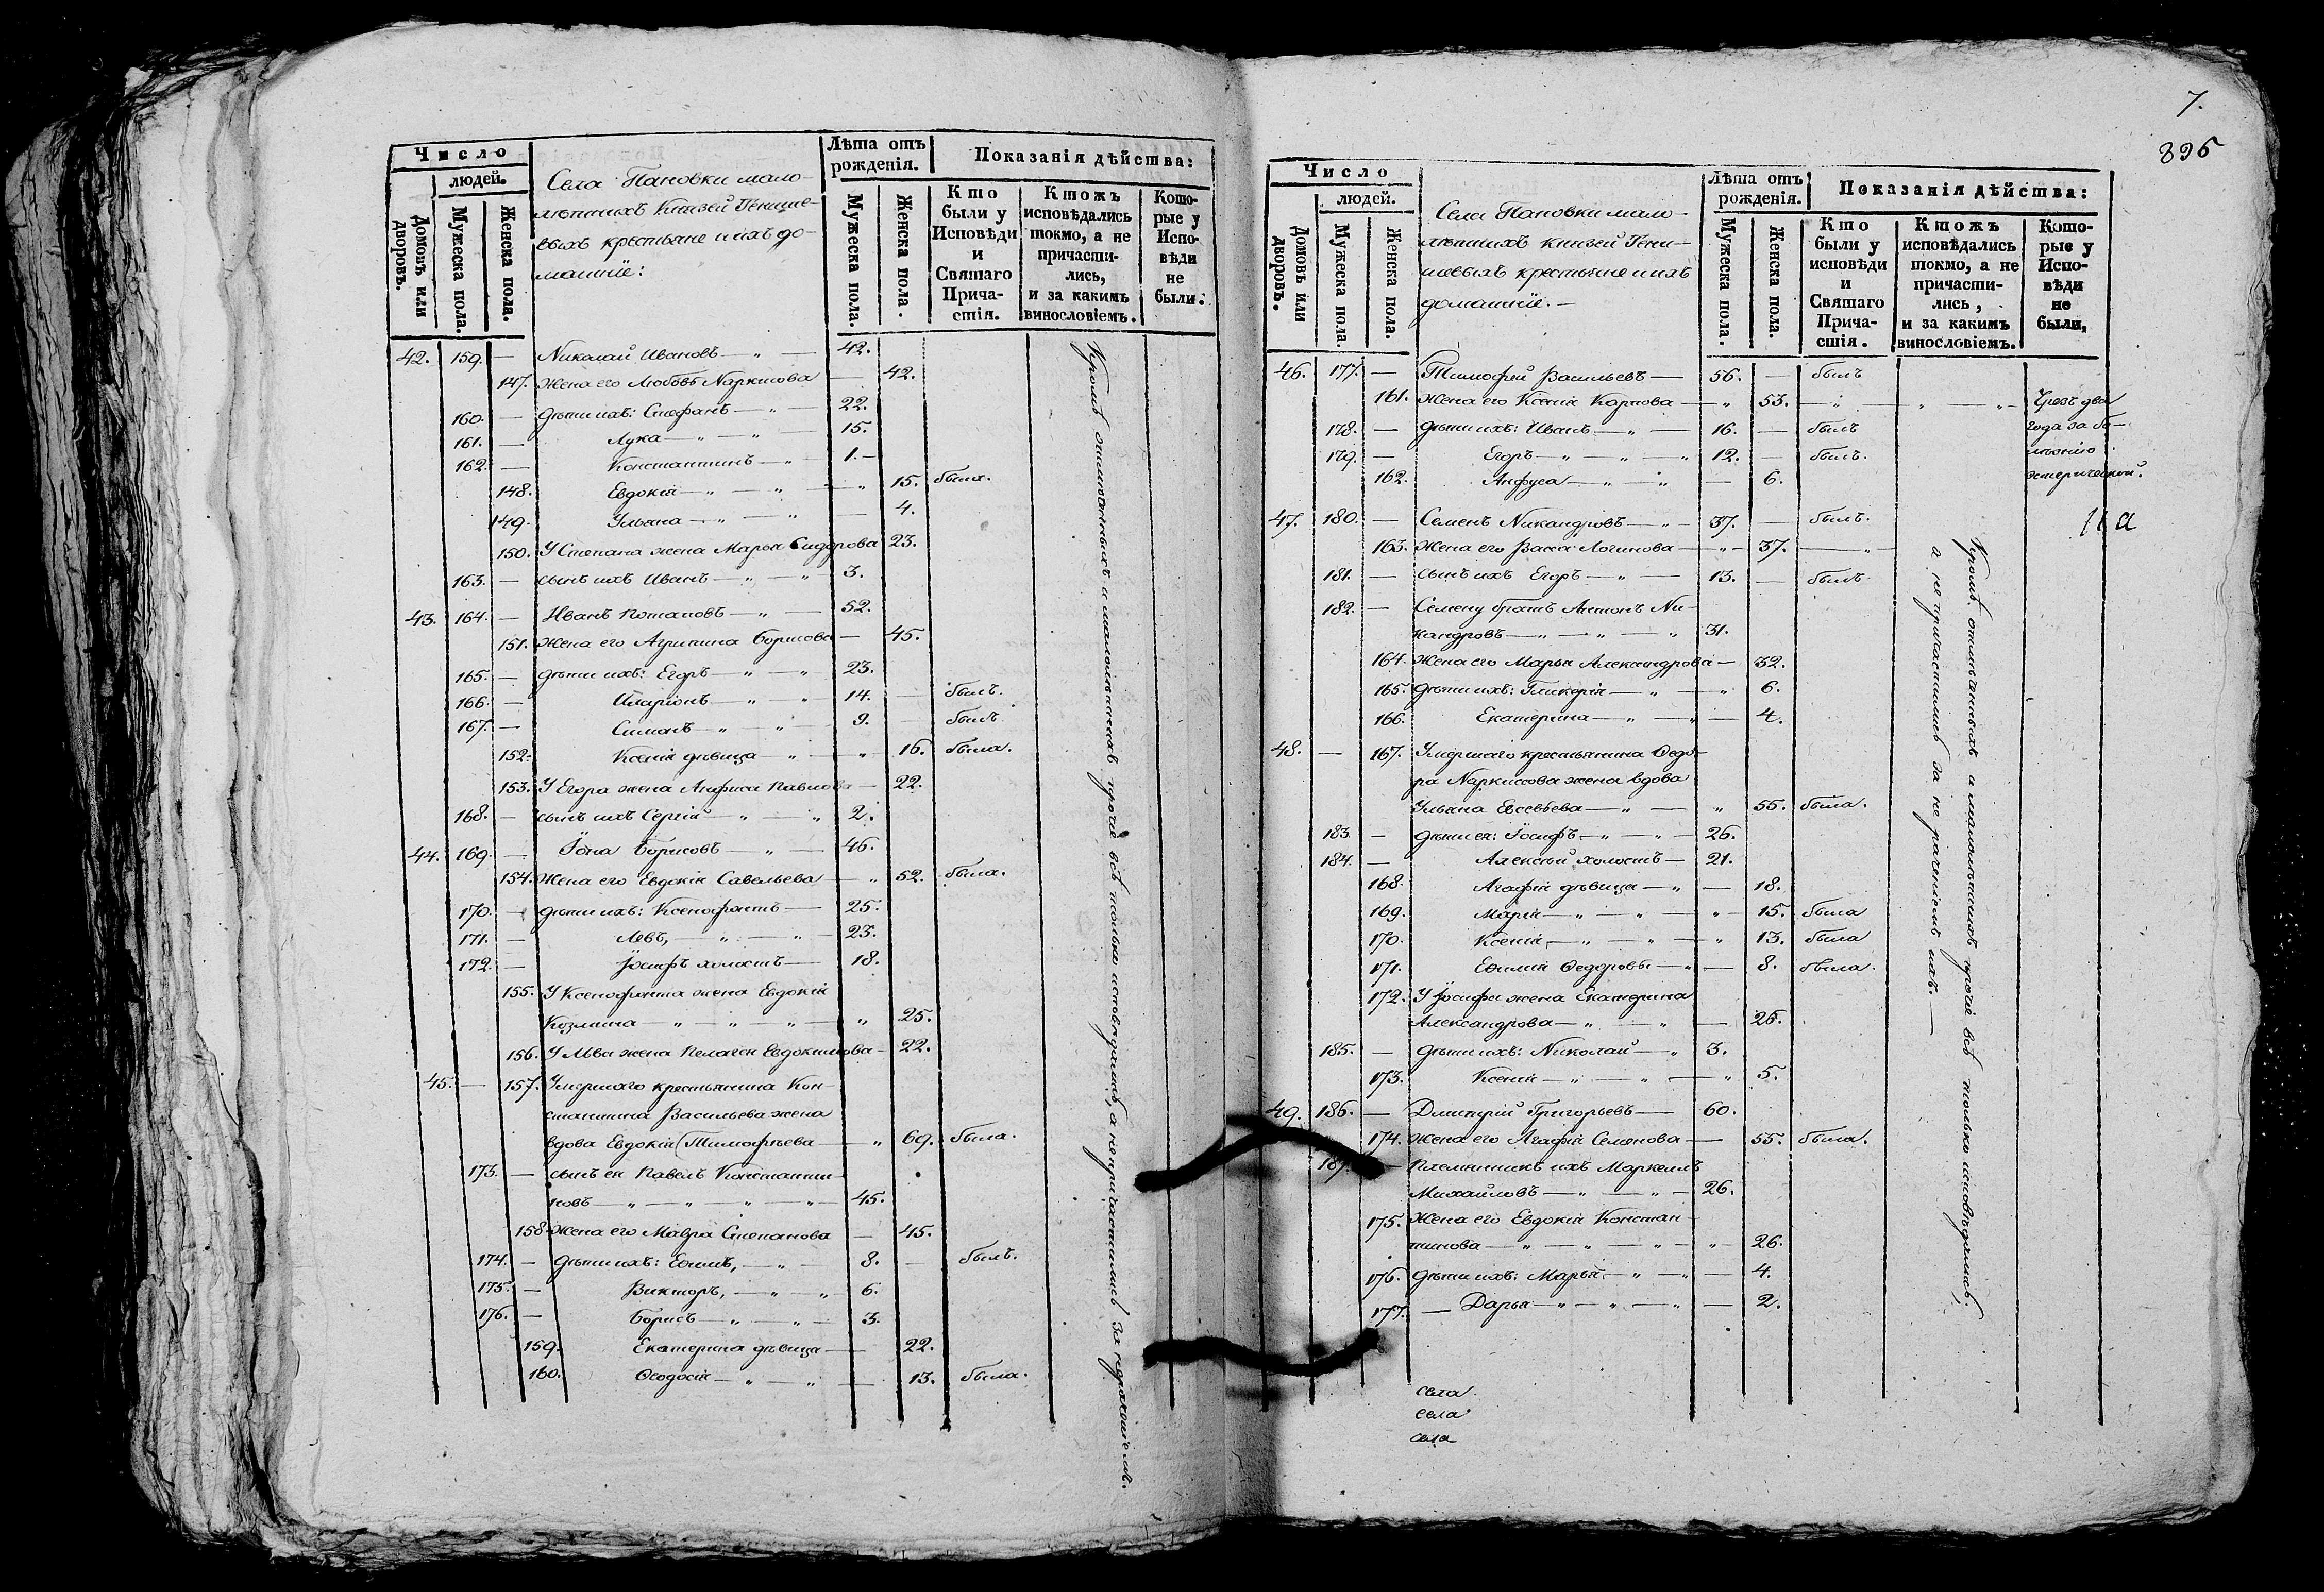 Число
людей.
Домовъ или дворовъ.
Мужеска пола.
Женска пола.
Села Пановки мало-
лѣтнихъ Князей
крестьяне и ихъ до-
машніе:
Лѣта отъ
рожденія.
Мужеска пола.
Женска пола.
Показанія дѣйства:
Кто
были у
Исповѣди
и
Святаго
Прича-
стія.
Ктожъ
исповѣдались
токмо, а не
причасти-
лись,
и за какимъ
винословіемъ.
Кото-
рые у
Испо-
вѣди
не
были.
42. 159. — Николай Ивановъ — „ — 42.
147. Жена его Любовь Наркисова — 42.
160. — дѣти ихъ: Стефанъ — „ — 22.
161. — Лука — „ — „ — 15.
162. — Константинъ — „ 1. —
148. Евдокія — „ — „ — „ 15. была.
149. Ульяна — „ — „ — 4.
150. У Степана жена Марья Сидорова 23.
163. — сынъ ихъ Иванъ — „ — „ 3.
43. 164. — Иванъ Потаповъ — „ — 52.
151. Жена его Агрипина Борисова — 45.
165. — дѣти ихъ: Егоръ — „ — „ 23.
166. — Иларіонъ — „ — „ 14. — былъ.
167. — Симонъ — „ — „ — 9. былъ.
152. Ксенія дѣвица — „ — „ 16. была.
153. У Егора жена Анфиса Павлова — 22.
168. — сынъ ихъ Сергій — „ — „ 2.
44. 169. — Іона Борисовъ — „ — 46.
154. Жена его Евдокія Савельева — „ 52. была.
170. — дѣти ихъ: Ксенофонтъ — 25.
171. — Левъ, — „ — „ — 23.
172. — Іосифъ холостъ — 18.
155. У Ксенофонта жена Евдокія
Козмина — „ — „ — „ — „ 25.
156. У Льва жена Пелагея Евдокимова — 22.
45. — 157. Умершаго крестьянина Кон-
стантина Васильева жена
вдова Евдокія Тимофѣева — „ 69. была.
173. — сынъ ея Павелъ Константи-
новъ — „ — „ — „ — „ — 45.
158. Жена его Мавра Степанова — 45.
174. — дѣти ихъ: Ефимъ, — „ — 8. — былъ.
175. — Викторъ, — „ — „ 6.
176. — Борисъ — „ — „ — 3.
159. Екатерина дѣвица — 22.
160. Ѳеодосія — „ — „ — 13. была.
Кромѣ отмѣченныхъ и малолѣтнихъ прочіе всѣ только исповѣдались, а непричастились за нераченіемъ.
7.
Число
людей.
Домовъ или дворовъ.
Мужеска пола.
Женска пола.
Села Пановки мало-
лѣтнихъ князей
крестьяне и ихъ
домашніе. —
Лѣта отъ
рожденія.
Мужеска пола.
Женска пола.
Показанія дѣйства:
Кто
были у
исповѣди
и
Святаго
Прича-
стія.
Ктожъ
исповѣдались
токмо, а не
причасти-
лись,
и за какимъ
винословіемъ.
Кото-
рые у
Испо-
вѣди
не
были,
46. 177. — Тимофей Васильевъ — 56. — былъ
161. Жена его Ксенія Карпова — „ 53. — „ „ — „ — Чрезъ два
178. — дѣти ихъ: Иванъ — „ — 16. — былъ года за бо-
179. — Егоръ — „ — „ — „ 12. — былъ. лѣзнію
162. Анфуса — „ — „ — 6. истерической.
47. 180. — Семенъ Никандровъ — „ — 37. — былъ.
163. Жена его Васса Логинова — „ — 37. — „ —
181. — сынъ ихъ Егоръ — „ — 13. — былъ.
182. — Семену братъ Антонъ Ни-
кандровъ — „ — „ — „ 31.
164. Жена его Марья Александрова — 32.
165. дѣти ихъ: Гликерія — „ — „ 6.
166. Екатерина — „ — „ — 4.
48. — 167. Умершаго крестьянина Ѳедо-
ра Наркисова жена вдова
Ульяна Евсевьева — „ — „ 55. была.
183. — дѣти ея: Іосифъ — „ — „ — 26.
184. — Алексѣй холостъ — 21.
168. Агафія дѣвица — „ — 18.
169. Марія — „ — „ — „ — 15. была
170. Ксенія, — „ — „ — „ 13. была
171. Ефимія Ѳедоровы — „ — 8. была.
172. У Іосифа жена Екатерина
Александрова — „ — „ — 25.
185. — дѣти ихъ: Николай — „ 3.
173. Ксенія — „ — „ — „ 5.
49. 186. — Дмитрій Григорьевъ — 60.
174. Жена его Агафія Семенова — 55. была.
187. — Племянникъ ихъ Маркеллъ
Михайловъ — „ — „ — 26.
175. Жена его Евдокія Констан-
тинова — „ — „ — „ — „ — 26.
176. дѣти ихъ: Марья, — „ — „ — 4.
177. — Дарья — „ — „ — „ — 2.
Кромѣ отмѣченныхъ и малолѣтнихъ прочіе всѣ только исповѣдались,
а не причастились за не раченіемъ ихъ. —
села
села
села